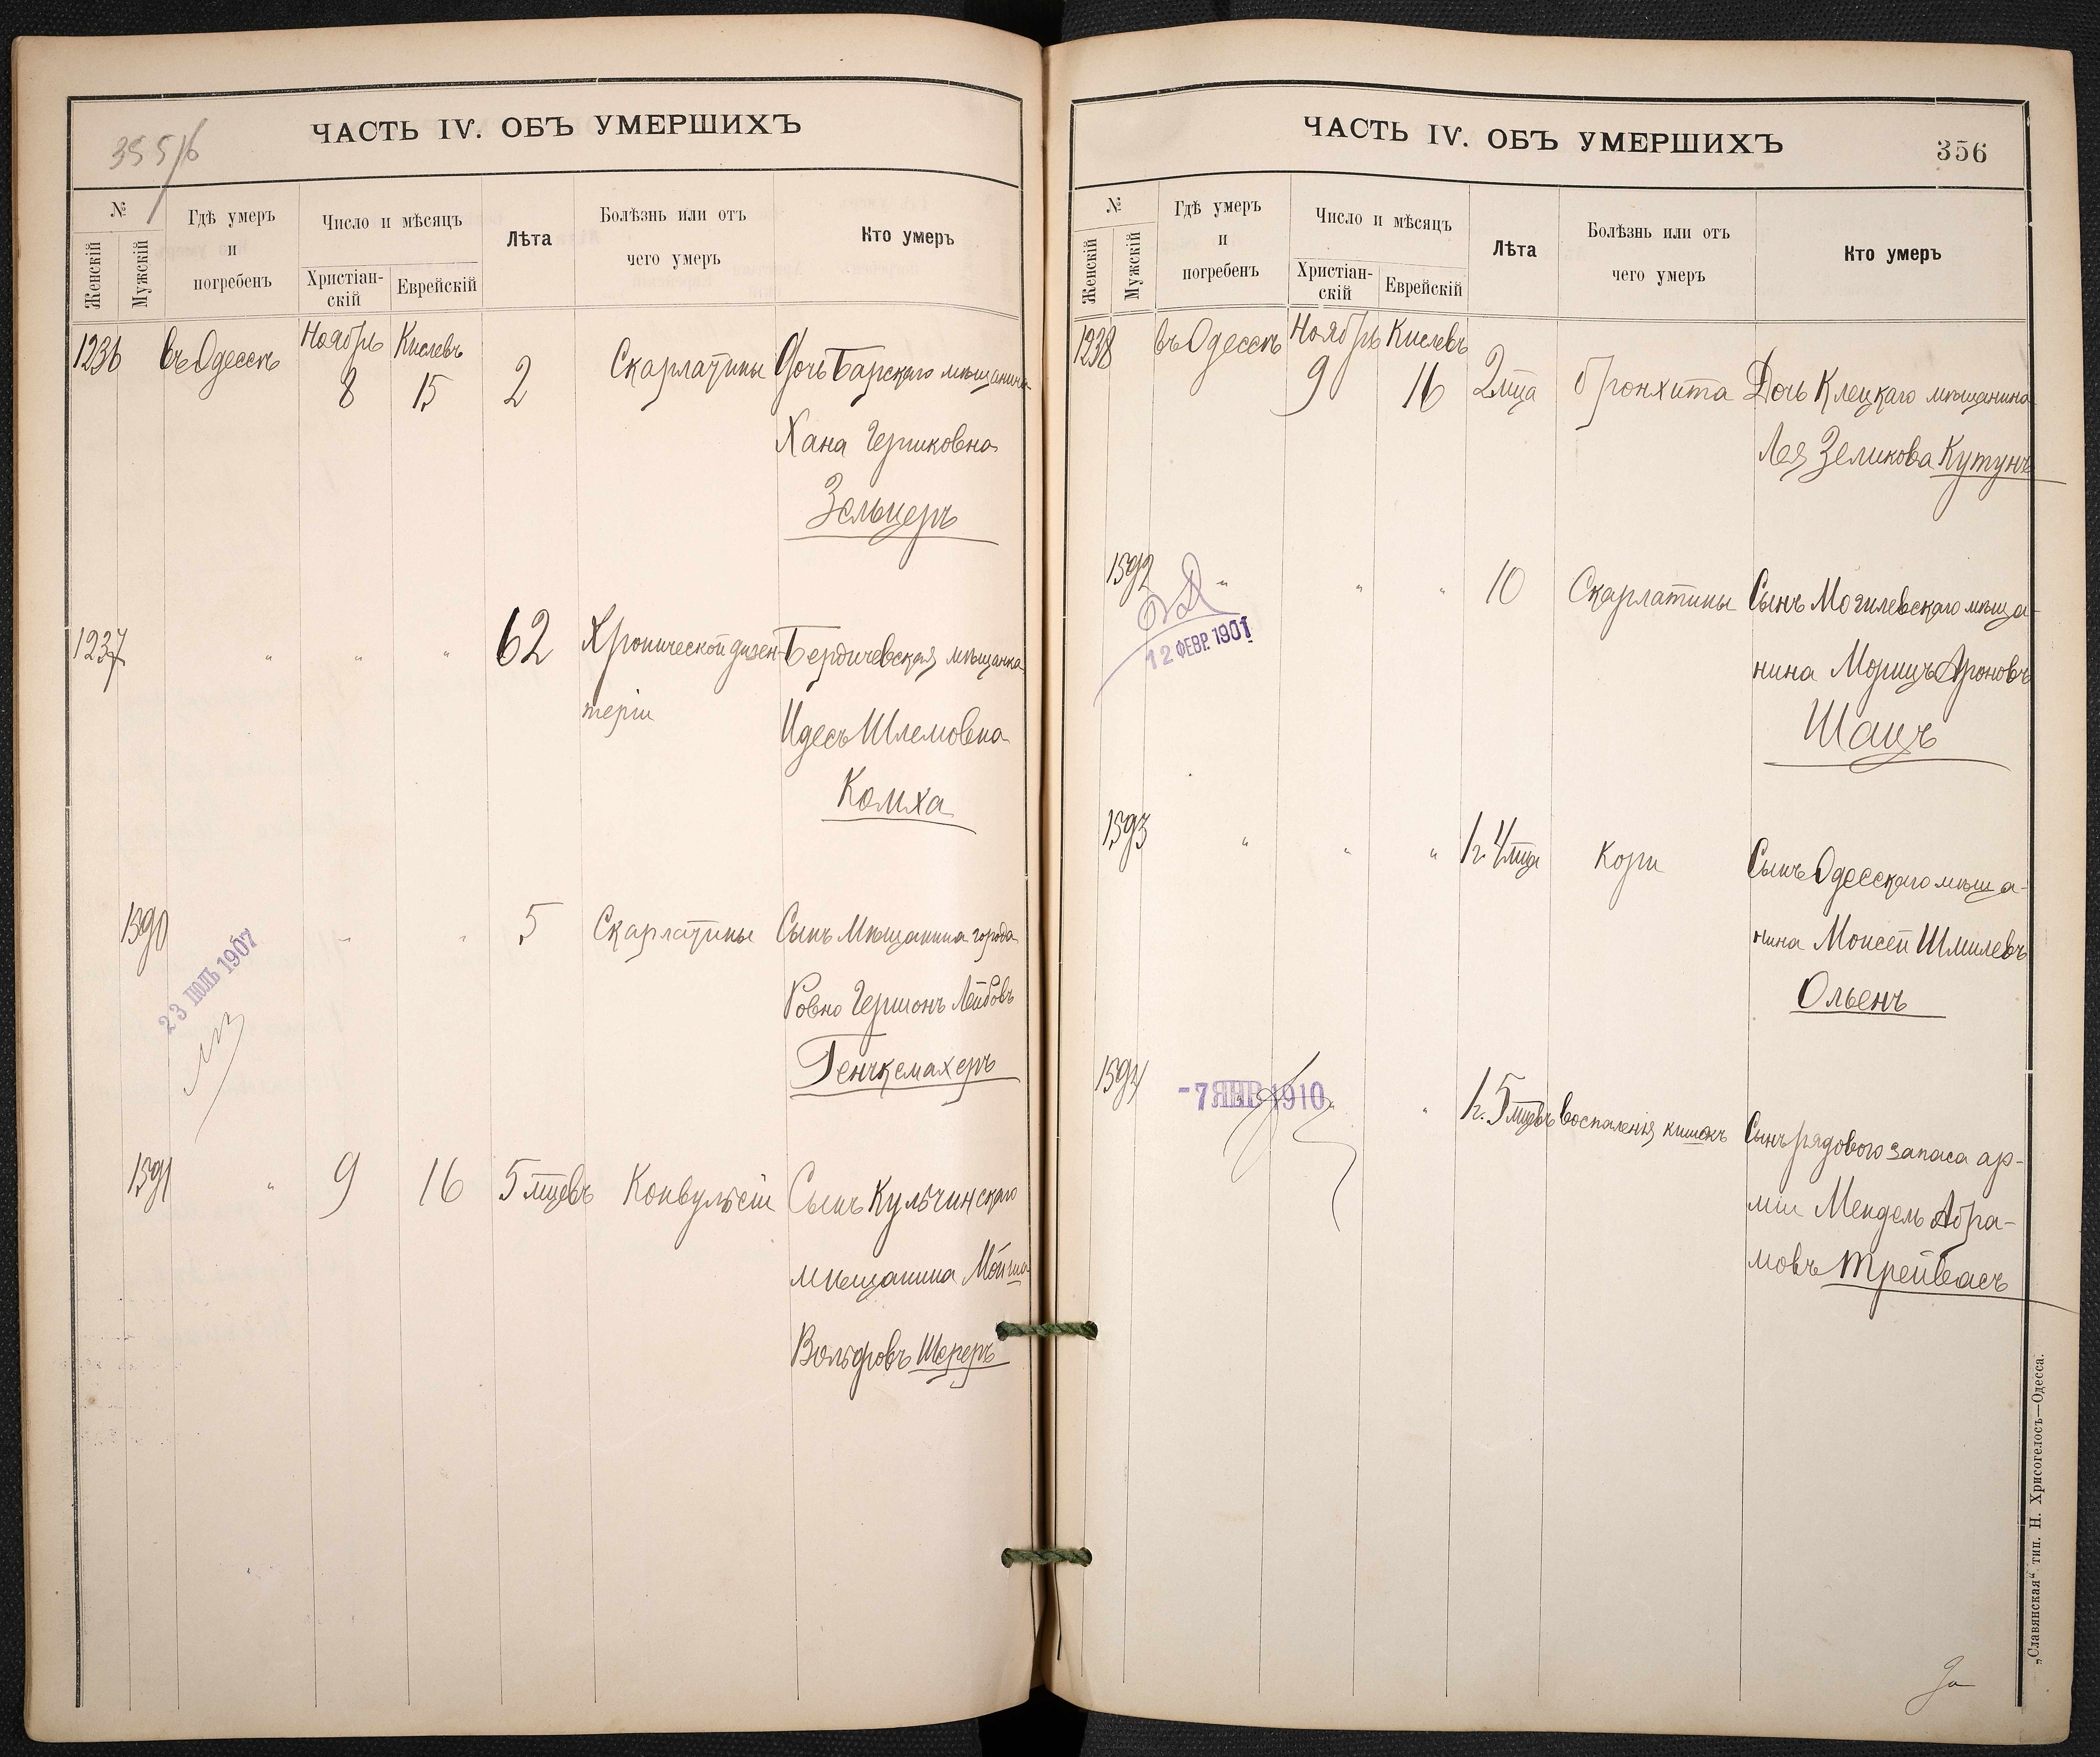 355/б
ЧАСТЬ IV. ОБЪ УМЕРШИХЪ
№
Женскій
Мужскій
Гдѣ умеръ
и
погребенъ
Число и мѣсяцъ
Христіан-
скій
Еврейскій
Лѣта
Болѣзнь или отъ
чего умеръ
Кто умеръ
1236 Въ Одессѣ Ноябрь 8 Кислевъ 15 2 Скарлатины Дочь Барскаго мѣщанина
Хана Гершковна
Зельцеръ
1237 " " " 62 Хронической дизен- Бердичевская мѣщанка
теріи
Идесъ Шлемовна
Комха
1590 " " 5 Скарлатины Сынъ Мѣщанина города
Ровно Гершонъ Лейбовъ
Генчкемахеръ
23 ІЮЛЬ 1907
1591 " 9 16 5 мцевъ Конвульсіи Сынъ Кульчинскаго
мѣщанина Мойша
Вольфовъ Шереръ
ЧАСТЬ IV. ОБЪ УМЕРШИХЪ
356
№
Женскій
Мужскій
Гдѣ умеръ
и
погребенъ
Число и мѣсяцъ
Христіан-
скій
Еврейскій
Лѣта
Болѣзнь или отъ
чего умеръ
Кто умеръ
1238 Въ Одессѣ Ноябрь 9 Кислевъ 16 2 мца бронхита Дочь Клецкаго мѣщанина
Лея Зеликова Кутунъ
1592 " " " 10 Скарлатины Сынъ Могилевскаго мѣща-
12 ФЕВР. 1901
нина Морицъ Ароновъ
Шацъ
1593 " " " 1 г. 4 мца Кори Сынъ Одесскаго мѣща-
нина Моисей Шмилевъ
Ольенъ
1594 " " " 1 г. 5 мцевъ Воспаленія кишокъ Сынъ рядового запаса ар-
-7 ЯНВ 1910
міи Мендель Абра-
мовъ Трейвасъ
„Славянская“ тип. Н. Хрисогелосъ—Одесса.